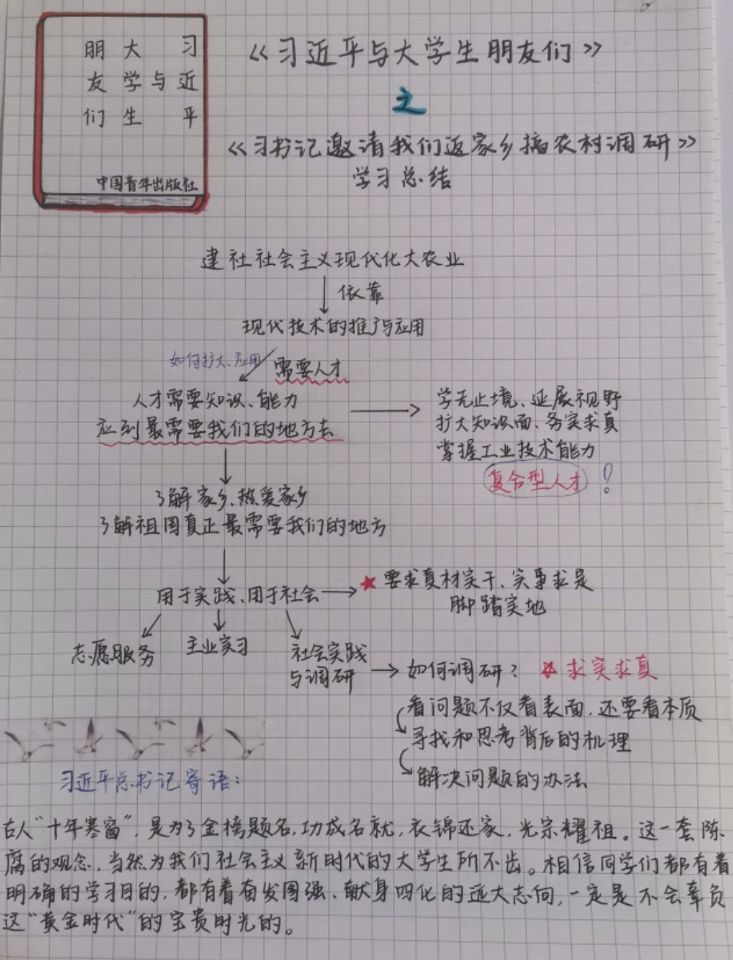 习近平
与
大学生
朋友们
中国青年出版社
《习近平与大学生朋友们》
之
《习书记邀请我们返家乡搞农村调研》
学习总结
建社社会主义现代化大农业
依靠
现代技术的推广与应用
如何扩大、应用
需要人才
人才需要知识、能力
应到最需要我们的地方去
学无止境、延展视野
扩大知识面、务实求真
掌握工业技术能力
复合型人才!
了解家乡、热爱家乡
了解祖国真正最需要我们的地方
用于实践、用于社会
★要求真材实干、实事求是
脚踏实地
志愿服务
主业实习
社会实践
与调研
如何调研?
☆求实求真
看问题不仅看表面,还要看本质
寻找和思考背后的机理
解决问题的办法
习近平总书记寄语:
古人“十年寒窗”,是为了金榜题名,功成名就,衣锦还家,光宗耀祖。这一套陈
腐的观念,当然为我们社会主义新时代的大学生所不齿。相信同学们都有着
明确的学习目的,都有着奋发图强、献身四化的远大志向,一定是不会辜负
这“黄金时代”的宝贵时光的。